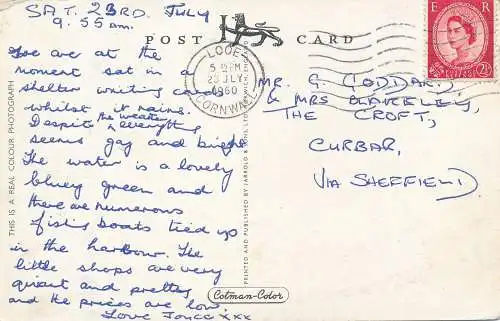 SAT. 23RD. JULY
9.55 am.
We are at the
moment sat in a
shelter writing cards
whilst it rains.
Despite the weather
everything
seems gay and bright
The water is a lovely
bluey green and
there are numerous
fishing boats tied up
in the harbour. The
little shops are very
quaint and pretty
and the prices are low.
Love Joyce xxx
POST CARD
LOOE
5 15 PM
23 JLY
1960
CORNWALL
E R
POSTAGE REVENUE
2½D
MR. G. GODDARD
& MRS BLAKELEY,
THE CROFT,
CURBAR,
VIA SHEFFIELD.
THIS IS A REAL COLOUR PHOTOGRAPH
PRINTED AND PUBLISHED BY JARROLD & SONS LTD NORWICH, ENGLAND
Cotman-Color